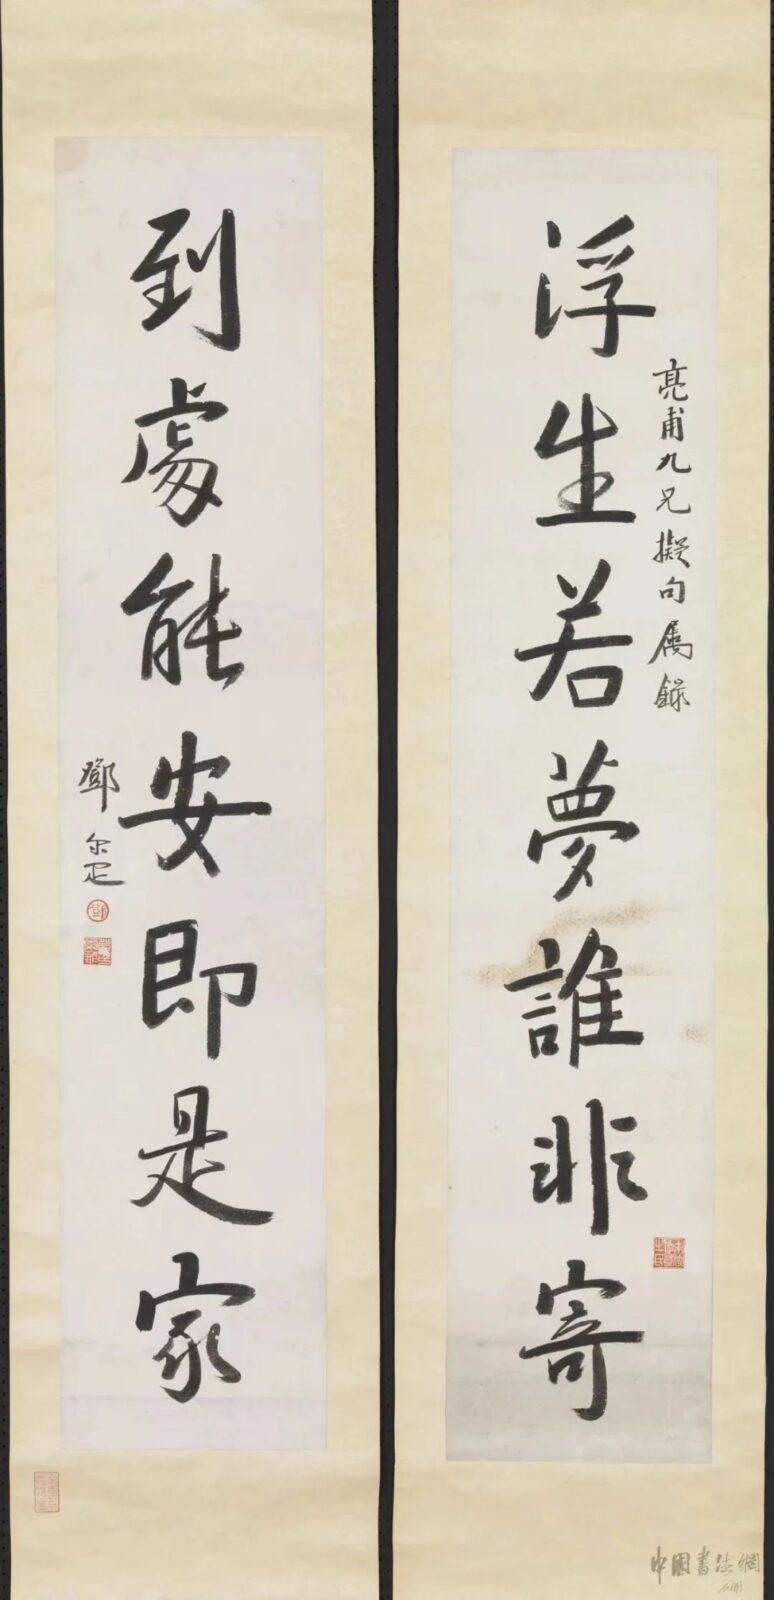 亮甫九兄擬句屬錄
浮生若夢誰非寄
到處能安即是家
鄧尔疋
中國書法網